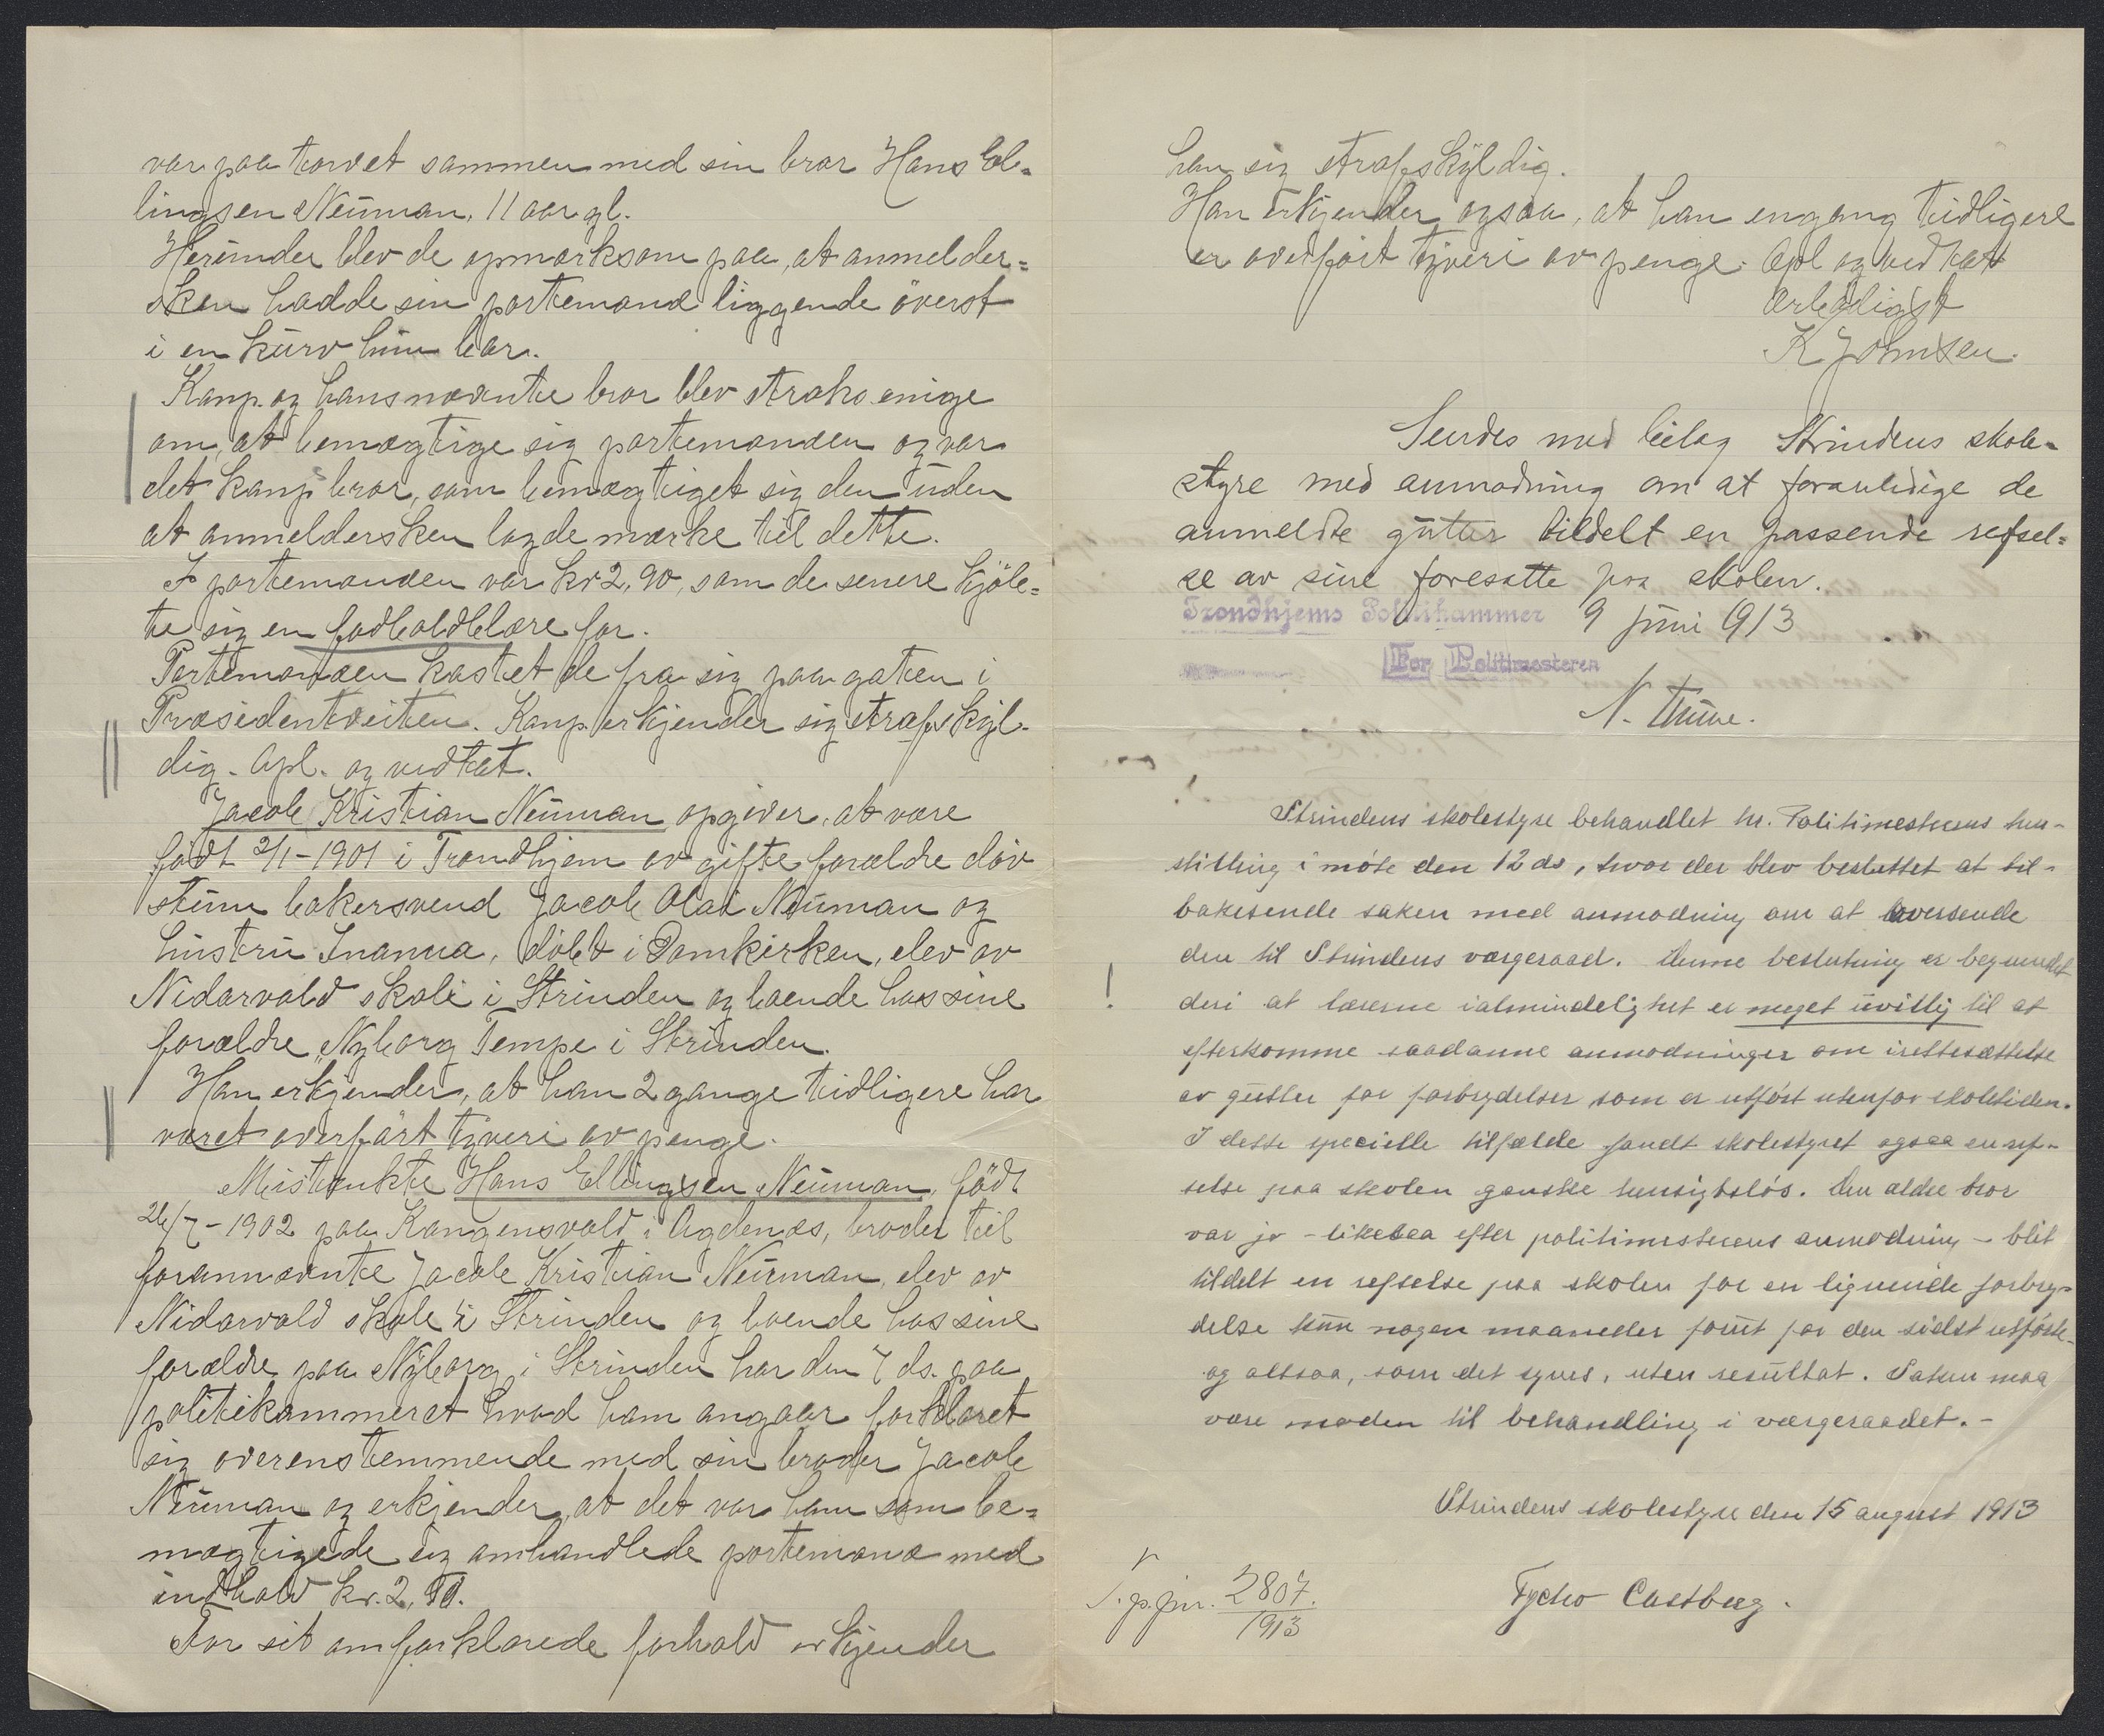 var paa torvet sammen med sin bror Hans El-
lingsen Neuman, 11 aar gl.
Herunder blev de opmærksom paa, at anmelder=
sken hadde sin portemonæ liggende överst
i en kurv hun bar.
Komp. og hans nævnte bror blev straks enige
om, at bemægtige sig portemonæen og var
det komp bror, som bemægtiget sig den uden
at anmeldersken lagde mærke til dette.
I portemonæen var kr 2,90, som de senere kjöb=
te sig en fodboldblære for.
Portemonæen kastet de fra sig paa gaten i
Præsidentveiten. Komp. erkjender sig strafskyl-
dig. Opl. og vedtat.
Jacob Kristian Neuman opgiver, at være
født 2/1-1901 i Trondhjem av gifte forældre döv
stum bakersvend Jacob Olai Neuman og
hustru Inanna, döbt i Domkirken, elev av
Nidarvold skole i Strinden og boende hos sine
forældre, Nyborg Tempe i Strinden.
Han erkjender, at han 2 gange tidligere har
været overfört tyveri av penge.
Mistænkte Hans Ellingsen Neuman, född
26/7-1902 paa Kongensvold i Agdenæs, broder til
forannævnte Jacob Kristian Neuman, elev av
Nidarvold skole i Strinden og boende hos sine
forældre paa Nyborg i Strinden har den 7 ds. paa
politikammeret hvad ham angaar forklaret
sig overenstemmende med sin broder Jacob
Neuman og erkjender, at det var ham som be=
mægtigede sig omhandlede portemonæ med
indhold kr. 2,90.
For sit omforklarede forhold erkjender
han sig strafskyldig.
Han erkjender ogsaa, at han engang tidligere
er overfört tyveri av penge. Opl og vedtat
Ærbødigst
K Johnsen.
Sendes med bilag Strindens skole-
styre med anmodning om at foranledige de
anmeldte gutter tildelt en passende refsel=
se av sine foresatte paa skolen.
Trondhjems Politikammer 9 juni 1913
For Politimesteren
N. Thune.
Strindens skolestyre behandlet hr. Politimesterens hen-
stilling i møte den 12 ds, hvor der blev besluttet at til-
bakesende saken med anmodning om at oversende
den til Strindens værgeraad. Denne beslutning er begrundet
deri at lærerne i almindelighet er meget uvillig til at
!
efterkomme saadanne anmodninger om irettesættelse
av gutter for forbrydelser som er utført utenfor skoletiden.
I dette specielle tilfælde fandt skolestyret ogsaa en ref-
selse paa skolen ganske hensigtsløs. Den ældre bror
var jo - likesaa efter politimesterens anmodning - blit
tildelt en refselse paa skolen for en lignende forbry-
delse kun nogen maaneder forut for den sidst utførte,
og altsaa, som det synes, uten resultat. Saken maa
være moden til behandling i værgeraadet. -
Strindens skolestyre den 15 august 1913
Tycho Castberg.
S. p. jnr. 2807.
1913